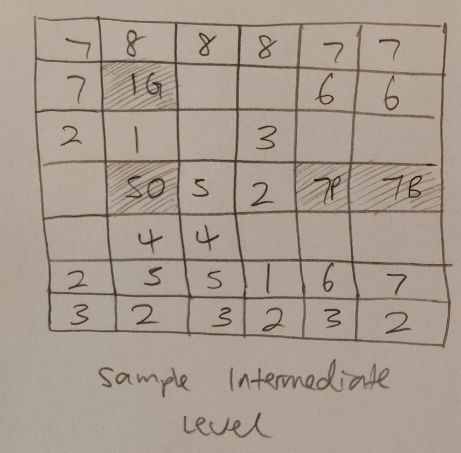 7 8 8 8 7 7
7 1G 6 6
2 1 3
5O 5 2 7P 7B
4 4
2 5 5 1 6 7
3 2 3 2 3 2
Sample Intermediate
Level